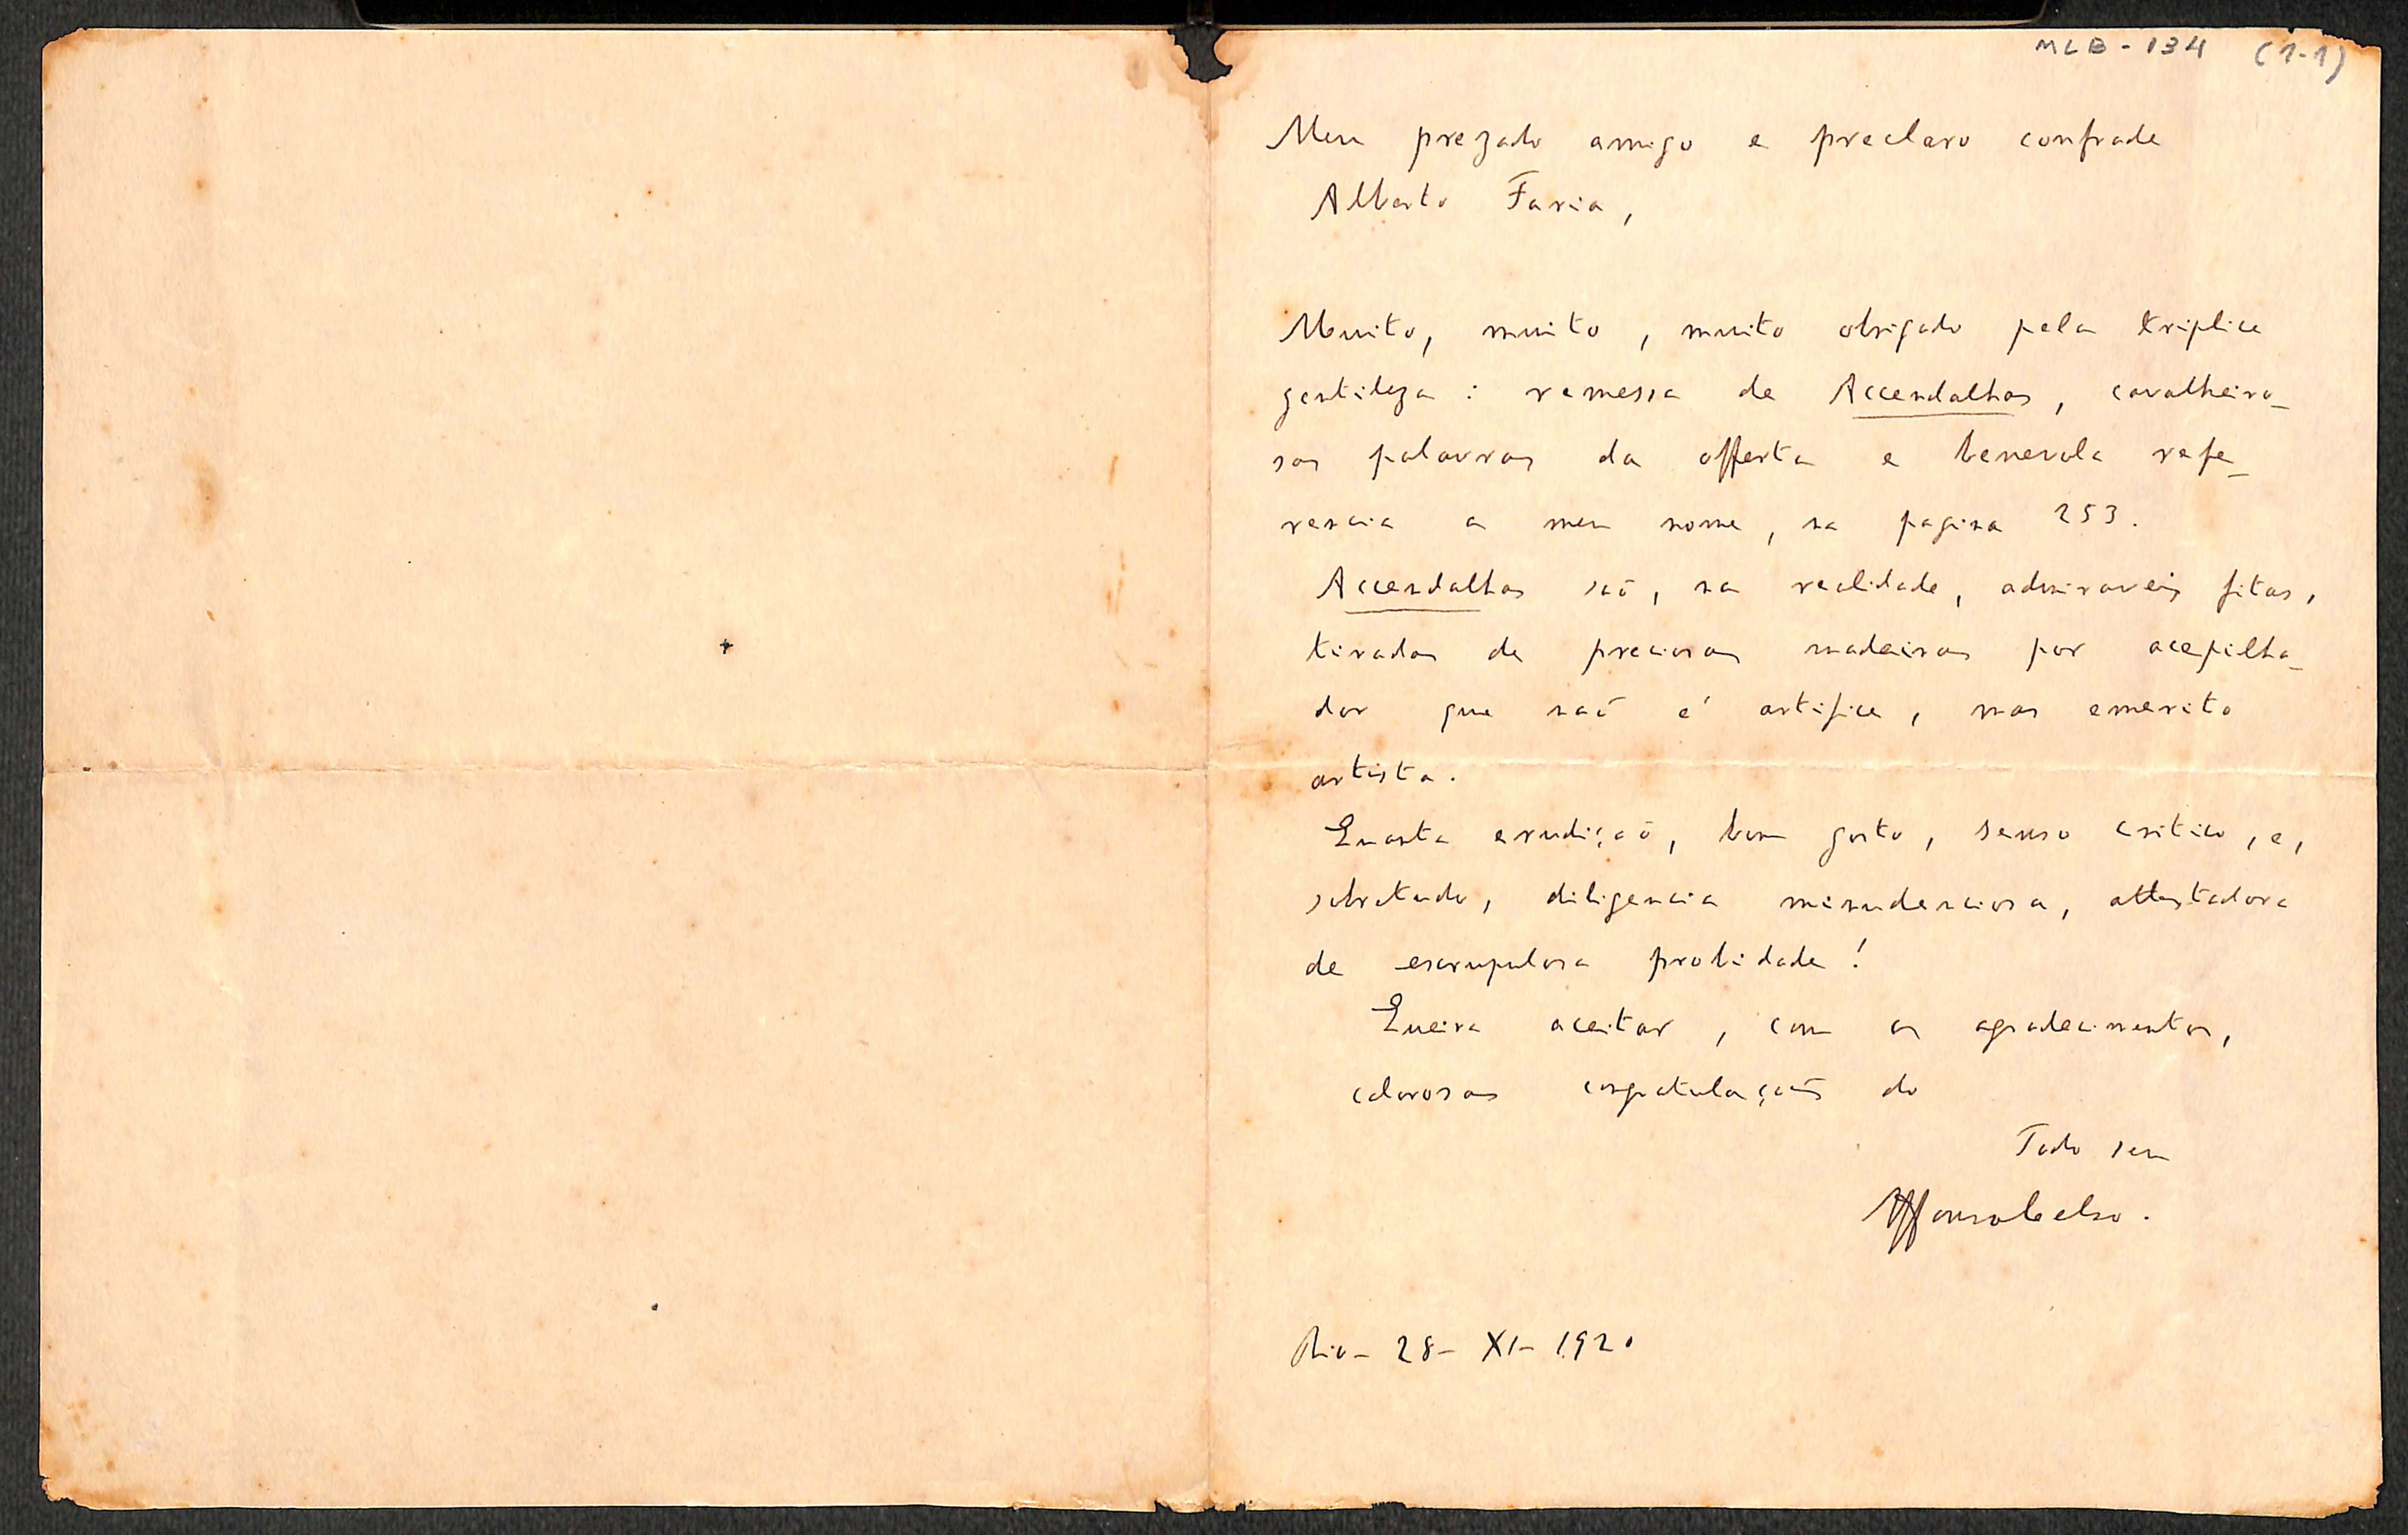 MLB - 134 (1-1)
Meu prezado amigo e preclaro confrade
Alberto Faria,
Muito, muito, muito obrigado pela triplice
gentileza: remessa de Accendalhas, cavalheiro-
sas palavras da offerta e benevola refe-
rencia a meu nome, na pagina 253.
Accendalhas saõ, na realidade, admiraveis fitas,
tiradas de preciosas madeiras por acepilha-
dor que naõ é artifice, mas emerito
artista.
Quanta erudiçaõ, bom gosto, senso critico, e,
sobretudo, diligencia minudenciosa, attestadora
de escrupulosa probidade!
Queira aceitar, com os agradecimentos,
calorosas congratulaçoẽs do
Todo seu
Affonso Celso.
Rio - 28 - XI - 1920